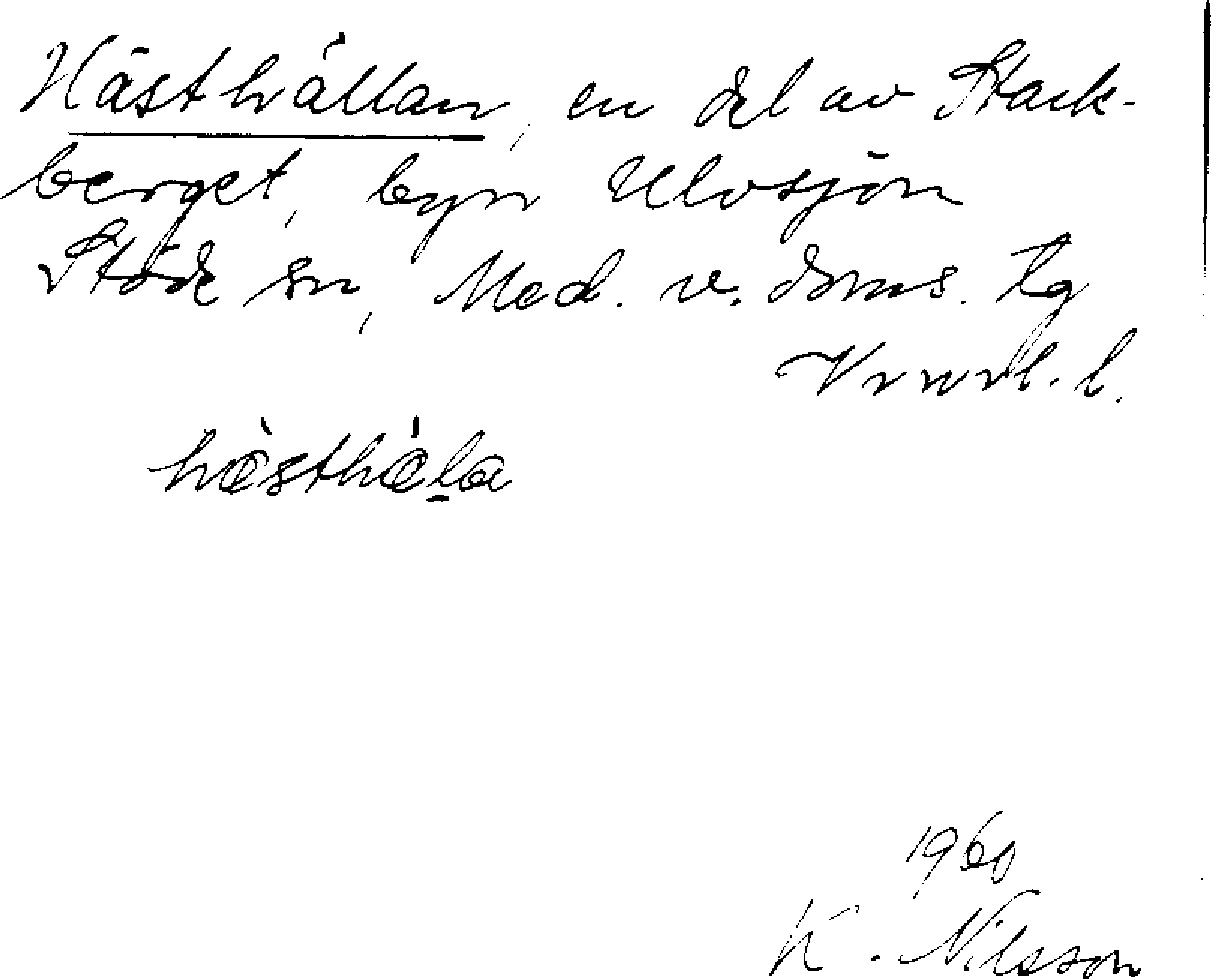 Hästhällan, en del av Stack-
berget, byn Ulvsjön
Stöde sn, Med. v. doms. tg
Vrnrl. l.
hæ̀sthæ̀la
1960
K. Nilsson